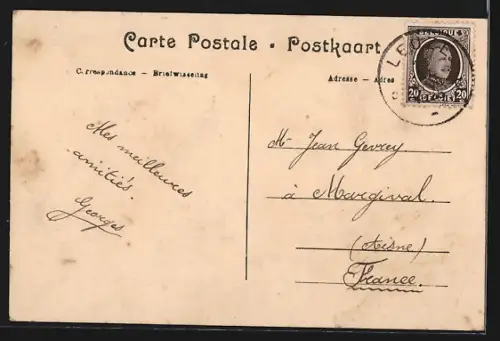 Carte Postale - Postkaart
Correspondance — Briefwisseling
Adresse — Adres
BELGIQUE
20 20
BELGIË
Mes meilleures
amitiés.
Georges
Mr Jean Gevrey
à Margival.
(Aisne)
France.